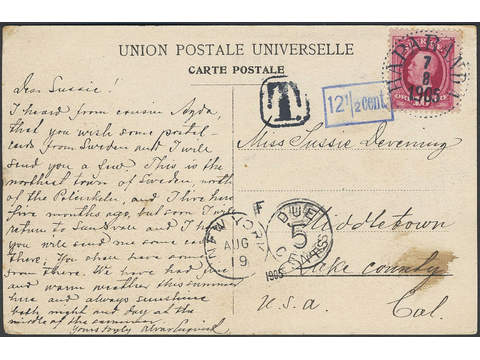 UNION POSTALE UNIVERSELLE
CARTE POSTALE
HAPARANDA
7
8
1905
T
12 1/2 cent.
Dear Sussie!
I heard from cousin Agda,
that you wish some postal-
cards from Sweden and I will
send you a few. This is the
northest town of Sweden north
of the Polcirkeln, and I live here
five months ago, but soon I will
return to Sundsvall and I hope
you will send me some cards
there. You shall have some
from there. We have had fine
and warm weather this summer
here and always sunshine
both night and day at the
middle of the summer.
Yours truly
Miss Sussie Devening
Middletown
Lake County
Cal.
U.S.a.
NEW YORK
AUG
19
1905
F
DUE
5
CENTS